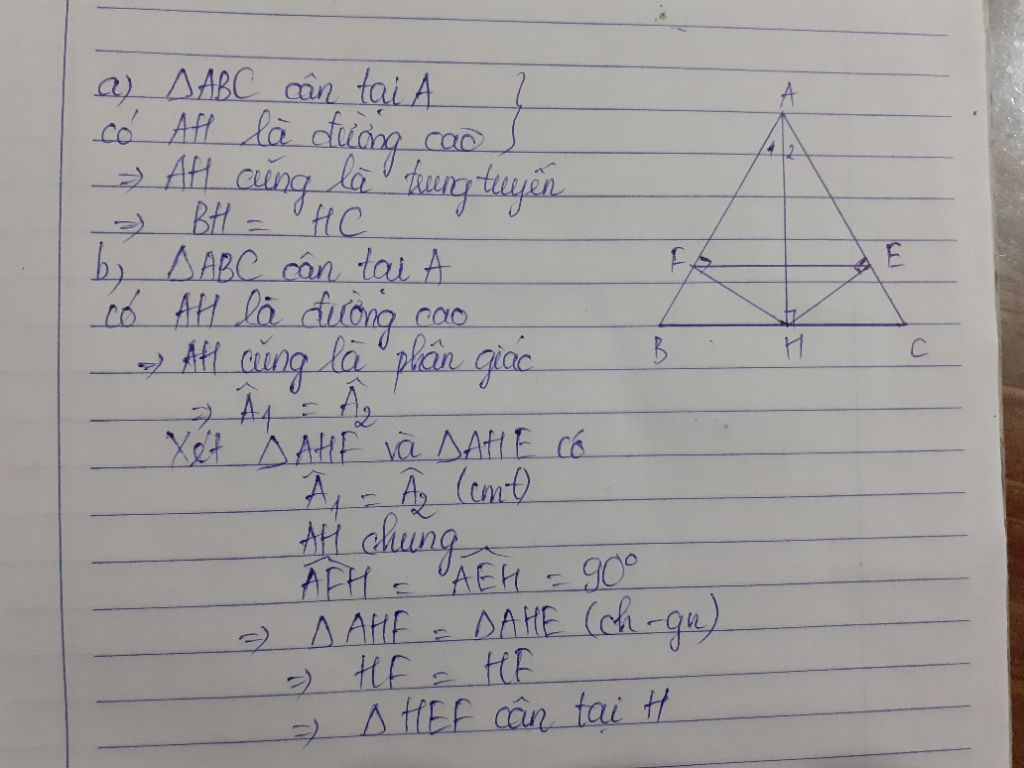 a) ΔABC cân tại A
có AH là đường cao
⇒ AH cũng là trung tuyến
⇒ BH = HC
b) ΔABC cân tại A
có AH là đường cao
⇒ AH cũng là phân giác
⇒ Â₁ = Â₂
Xét ΔAHF và ΔAHE có
Â₁ = Â₂ (cmt)
AH chung
AFH = AEH = 90°
⇒ ΔAHF = ΔAHE (ch-gn)
⇒ HF = HE
⇒ ΔHEF cân tại H
A
1 2
F E
B H C